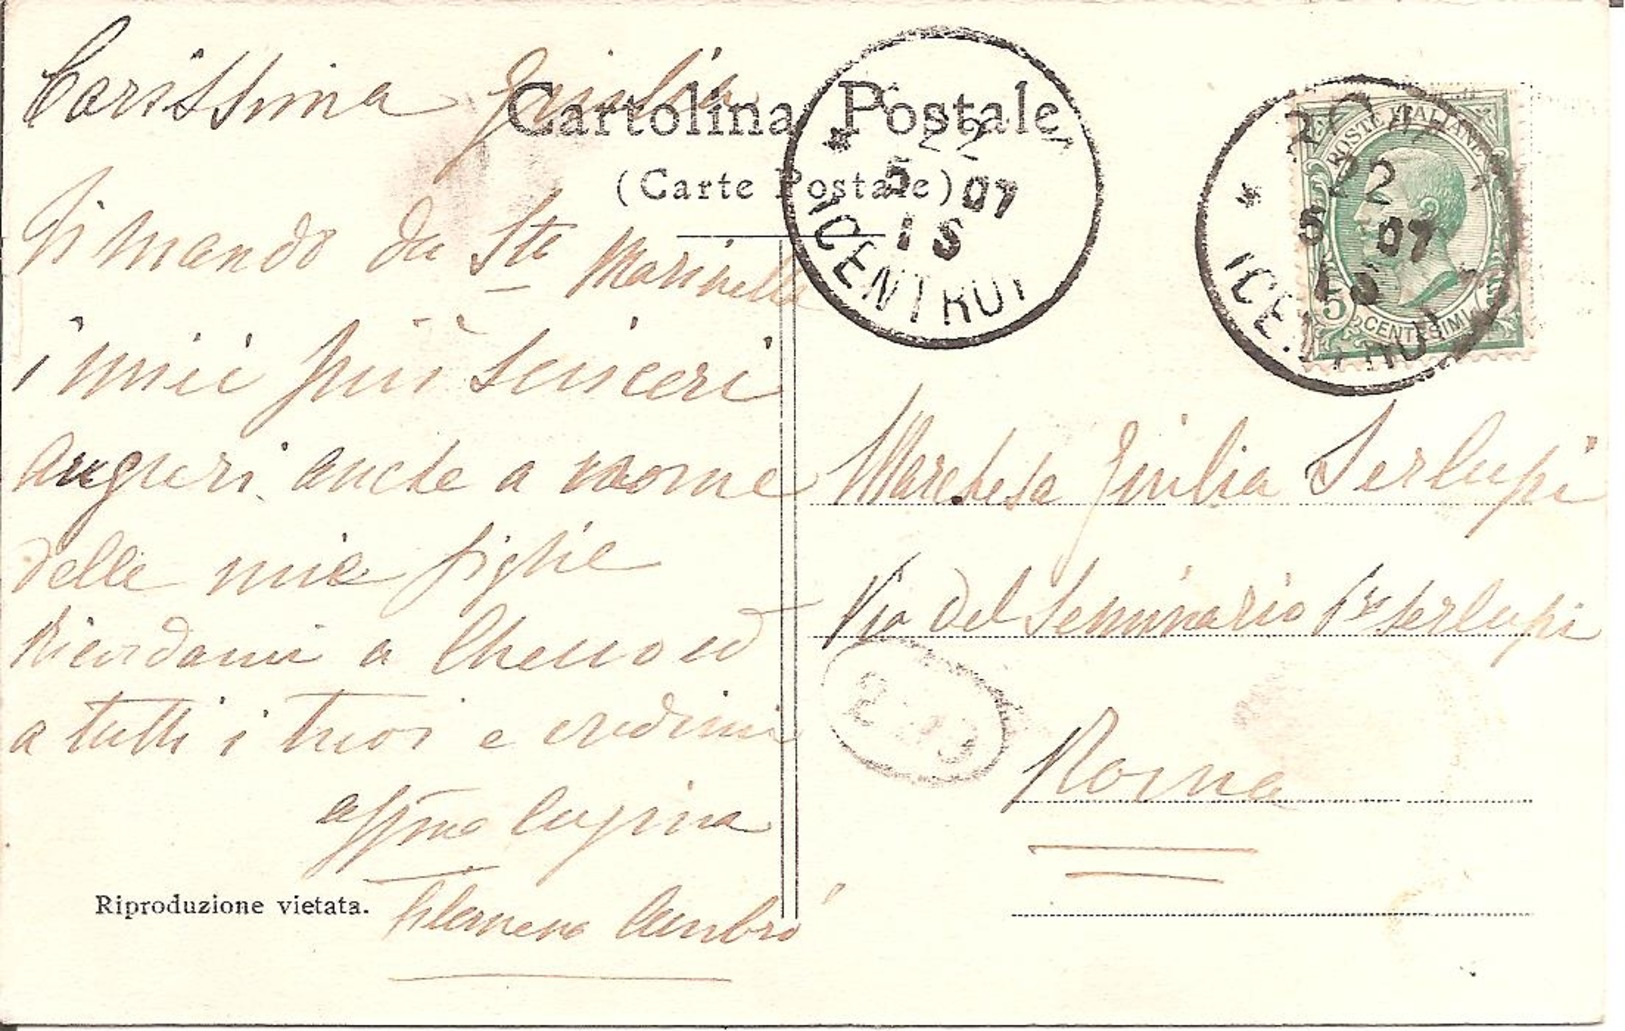 Carissima Giulia
Ti mando da Ste Marinella
i miei più sinceri
auguri anche a nome
delle mie figlie
Ricordami a
a tutti i tuoi e credimi
affma cugina
Riproduzione vietata.
Cartolina Postale
(Carte Postale)
22
5 07
18
(CENTRO)
POSTE ITALIANE
22
5 07
18
5 CENTESIMI
Marchesa Giulia Serlupi
Via del Seminario Serlupi
Roma